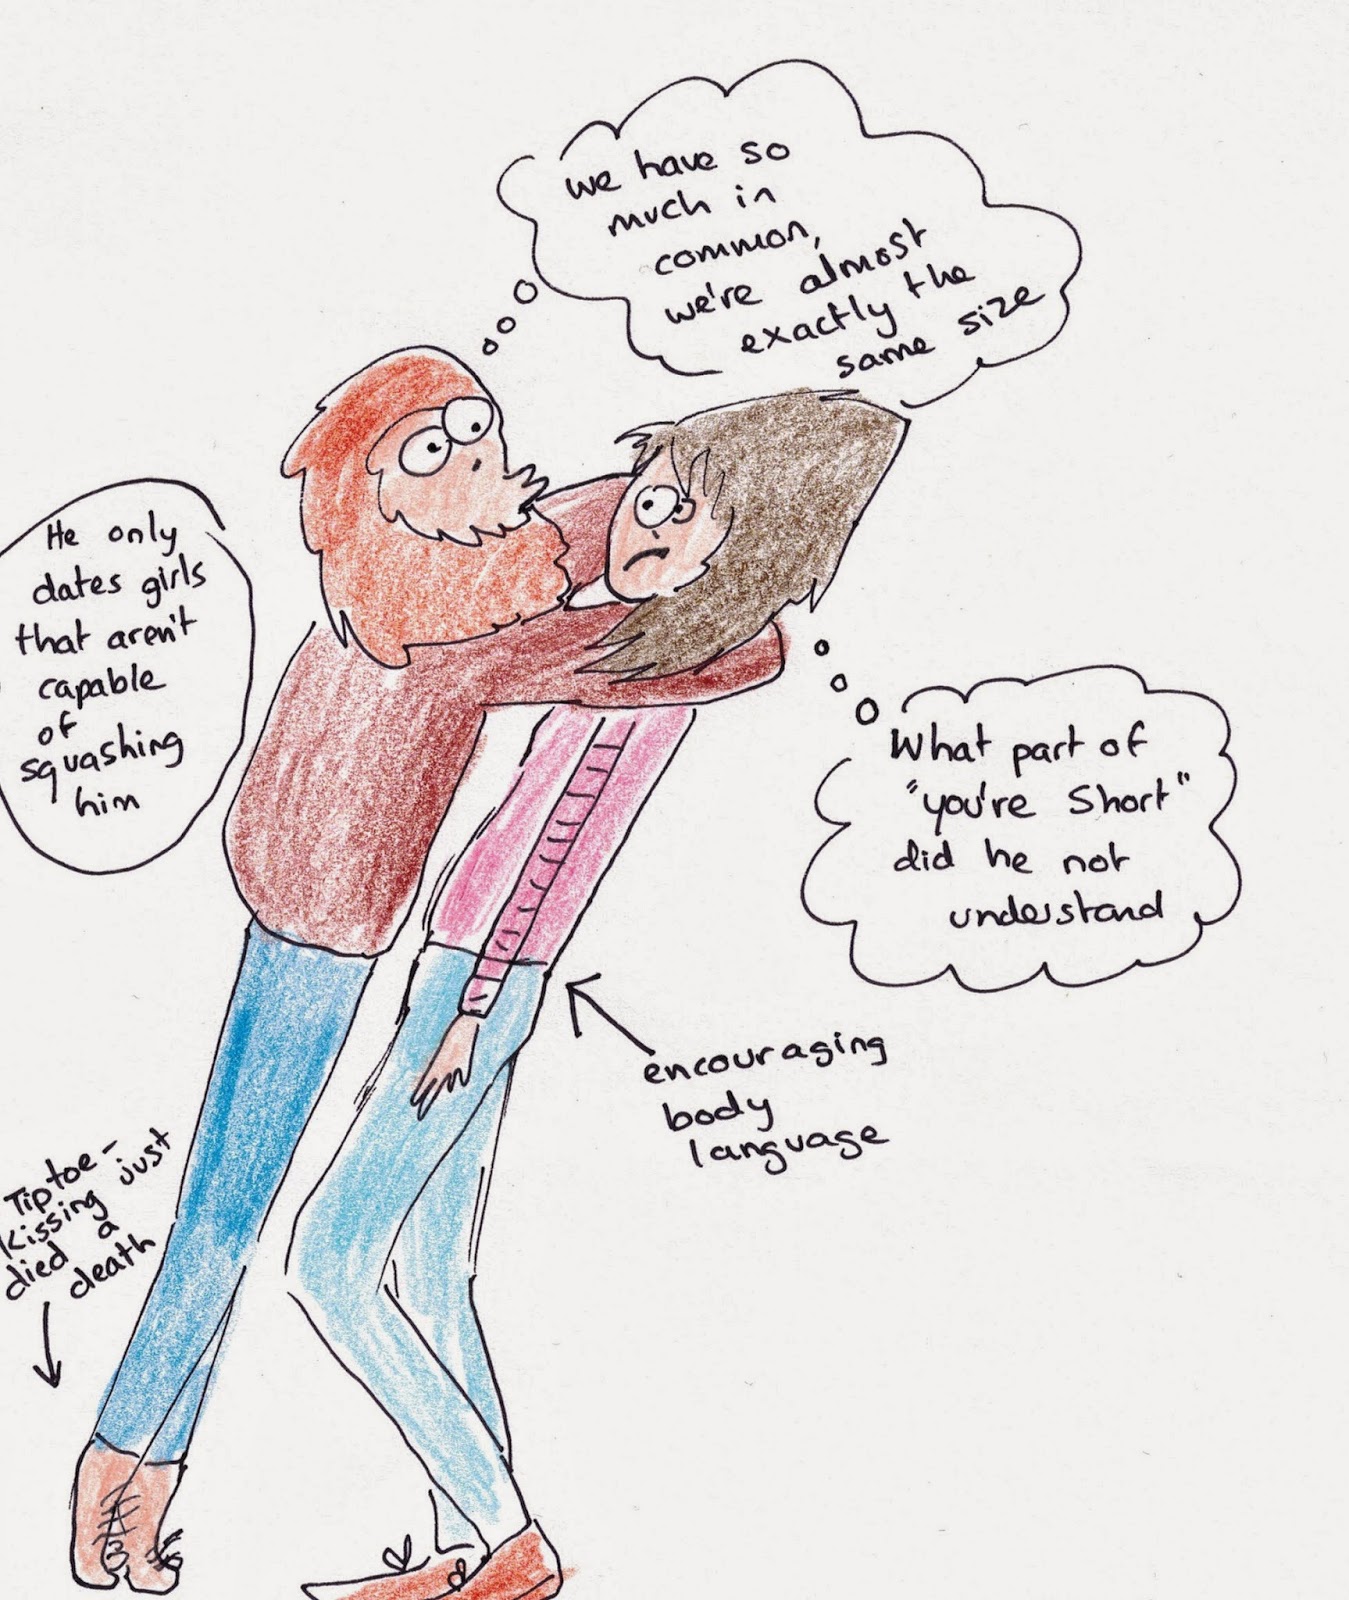 we have so
much in
common,
we're almost
exactly the
same size
He only
dates girls
that aren't
capable
of
squashing
him
What part of
"you're Short"
did he not
understand
encouraging
body
language
Tiptoe-
kissing just
died a
death